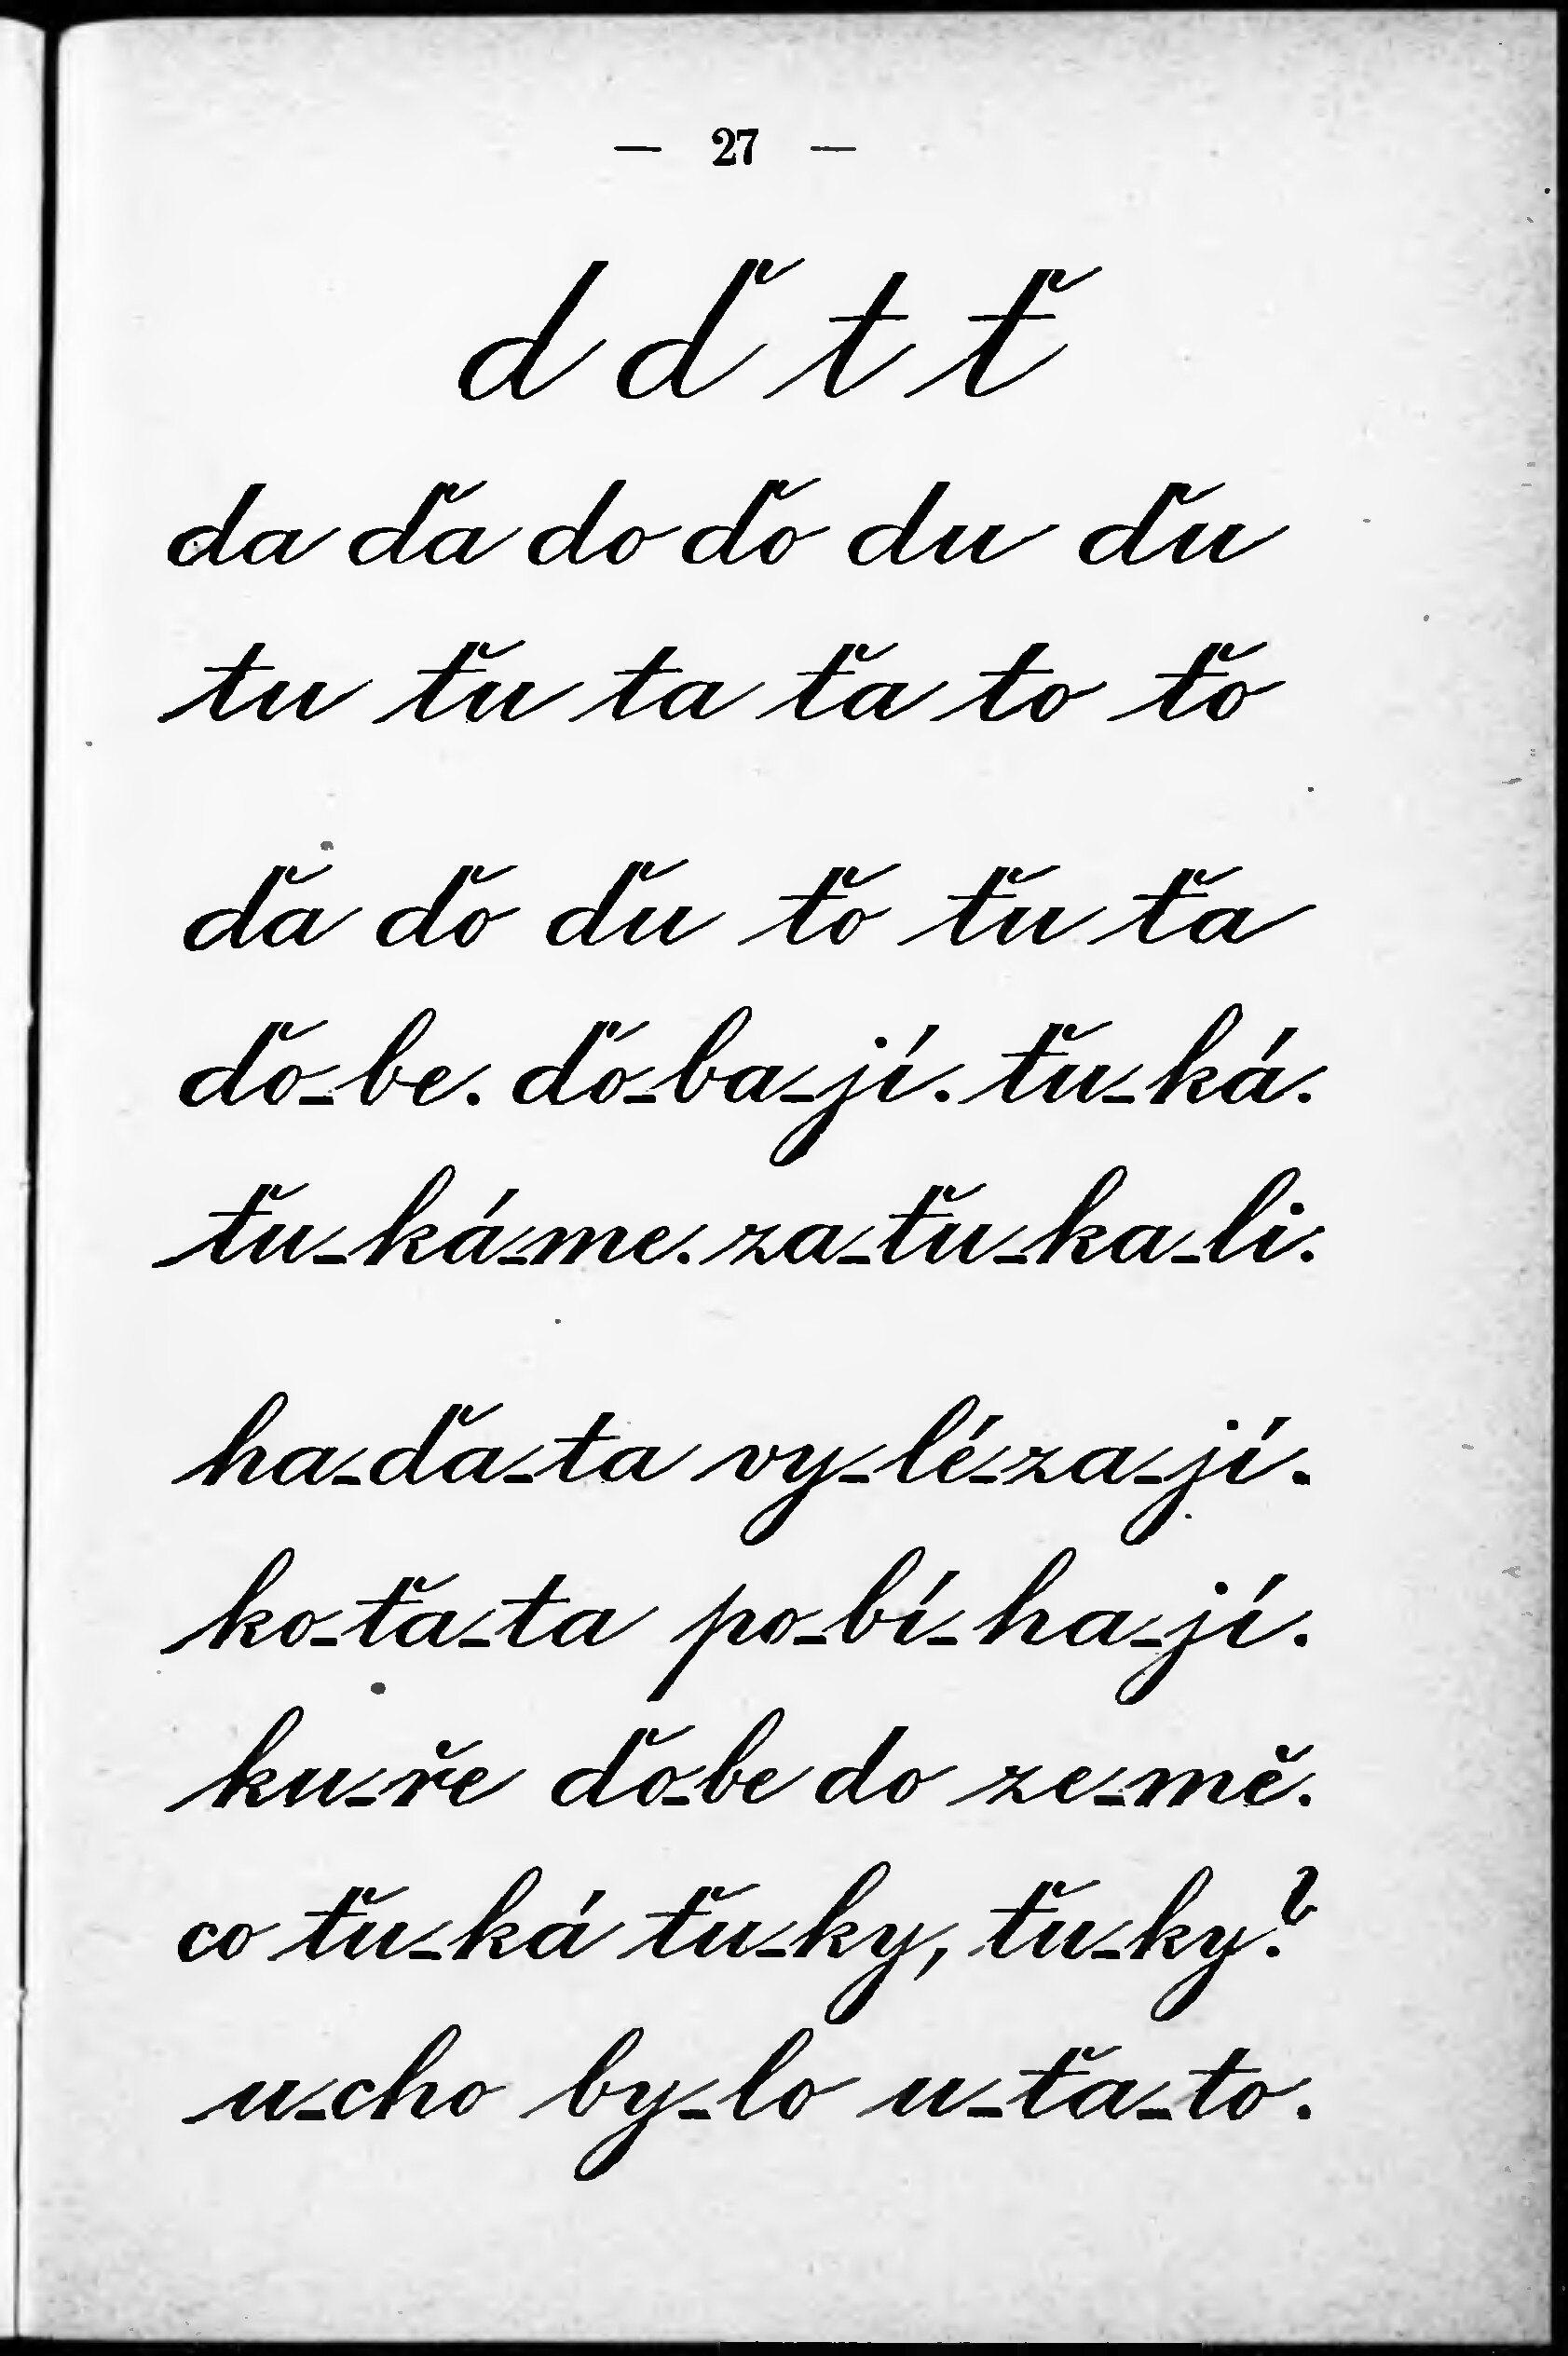 — 27 —
d ď t ť
da ďa do ďo du ďu
tu ťu ta ťa to ťo
ďa ďo ďu ťo ťu ťa
ďo-be. ďó-ba-jí. ťu-ká.
ťu-ká-me. za-ťu-ka-li.
ha-ďa-ta vy-lé-za-jí.
ko-ťa-ta po-bí-ha-jí.
ku-ře ďo-be do ze-mě.
co ťu-ká ťu-ky, ťu-ky?
u-cho by-lo u-ťa-to.